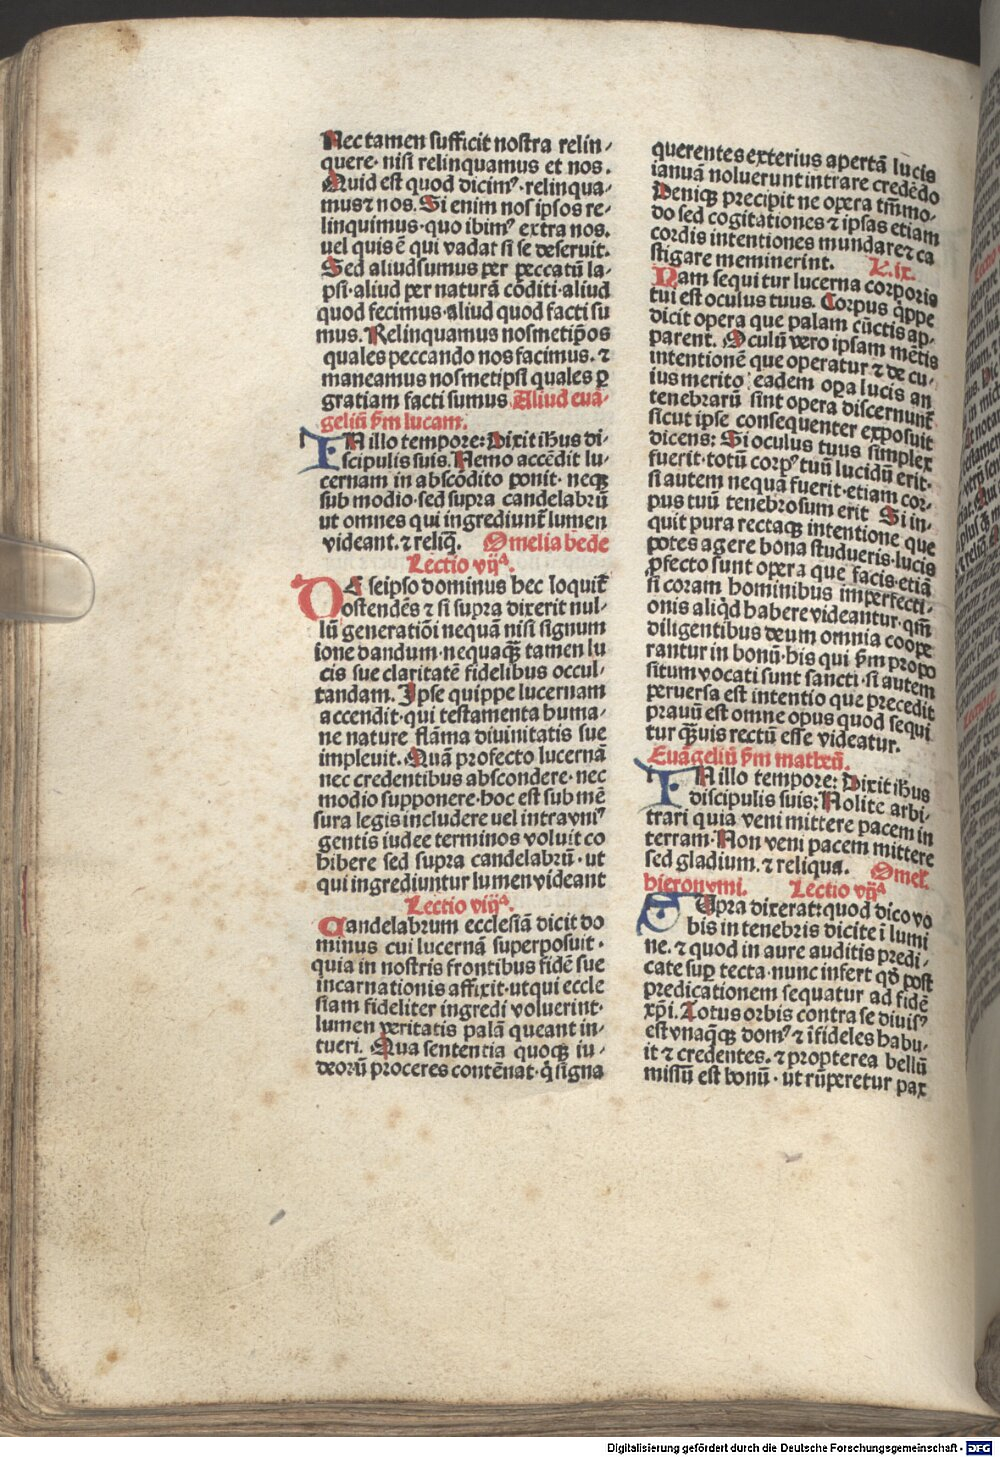 Nec tamen sufficit nostra relin-
quere· nisi relinquamus et nos.
Quid est quod dicimꝰ·relinqua-
mus ⁊ nos. Si enim nos ipsos re-
linquimus·quo ibimꝰ extra nos.
uel quis ē qui vadat si se deseruit.
Sed aliud sumus per peccatū la-
psi·aliud per naturā cōditi·aliud
quod fecimus·aliud quod facti su
mus. Relinquamus nosmetip̄os
quales peccando nos facimus. ⁊
maneamus nosmetipsi quales ꝑ
gratiam facti sumus Aliud euā-
geliū ẜm lucam.
IN illo tempore: Dixit ih̄us di-
scipulis suis. Nemo accēdit lu-
cernam in abscōdito ponit· neqꝫ
sub modio·sed supra candelabrū
ut omnes qui ingrediunt᷑ lumen
videant. ⁊ reliq̄. Omelia bede
Lectio vijª.
DE seipso dominus hec loquit᷑
ostendēs ⁊ si supra dixerit nul-
lū generatiōi nequā nisi signum
ione dandum·nequaqꝫ̄ tamen lu
cis sue claritatē fidelibus occul-
tandam. Ipse quippe lucernam
accendit·qui testamenta huma-
ne nature flāma diuinitatis sue
impleuit. Quā profecto lucernā
nec credentibus abscondere·nec
modio supponere·hoc est sub mē
sura legis includere uel intra vniꝰ
gentis iudee terminos voluit co
hibere sed supra candelabrū·ut
qui ingrediuntur lumen videant
Lectio viijª.
Candelabrum ecclesiā dicit do
minus cui lucernā superposuit·
quia in nostris frontibus fidē sue
incarnationis affixit·ut qui eccle
siam fideliter ingredi voluerint·
lumen veritatis palā queant in-
tueri. Qua sententia quoqꝫ iu-
deorū proceres contēnat·q̇ signa
querentes exterius apertā lucis
ianuā noluerunt intrare credēdo
Deniqꝫ precipit ne opera tm̄mo-
do sed cogitationes ⁊ ipsas etiam
cordis intentiones mundare ⁊ ca
stigare meminerint. L. ix.
Nam sequitur lucerna corporis
tui est oculus tuus. Corpus q̇ppe
dicit opera que palam cūctis ap-
parent. Oculū vero ipsam mētis
intentionē que operatur ⁊ de cu-
ius merito eadem oꝑa lucis an
tenebrarū sint opera discernunt᷑
sicut ipse consequenter exposuit
dicens: Si oculus tuus simplex
fuerit·totū corpꝰ tuū lucidū erit·
si autem nequā fuerit·etiam cor-
pus tuū tenebrosum erit Si in-
quit pura rectaqꝫ intentione que
potes agere bona studueris·lucis
ꝓfecto sunt opera que facis·etiā
si coram hominibus imperfecti-
onis aliq̇d habere videantur·qm̄
diligentibus deum omnia coope
rantur in bonū·his qui ẜm propo
situm vocati sunt sancti·si autem
peruersa est intentio que precedit
prauū est omne opus quod sequi
tur qꝫ̄uis rectū esse videatur.
Euāgeliū ẜm matheū.
IN illo tempore: Dixit ih̄us
discipulis suis: Nolite arbi-
trari quia veni mittere pacem in
terram·Non veni pacem mittere
sed gladium. ⁊ reliqua. Omel.
hieronymi. Lectio vijª
SUpra dixerat: quod dico vo
bis in tenebris dicite ī lumi
ne. ⁊ quod in aure auditis predi-
cate suꝑ tecta·nunc infert qd̄ post
predicationem sequatur ad fidē
xp̄i. Totus orbis contra se diuisꝰ
est vnaq̄qꝫ domꝰ ⁊ īfideles habu-
it ⁊ credentes. ⁊ propterea bellū
missū est bonū·ut rūperetur pax
Digitalisierung gefördert durch die Deutsche Forschungsgemeinschaft - DFG